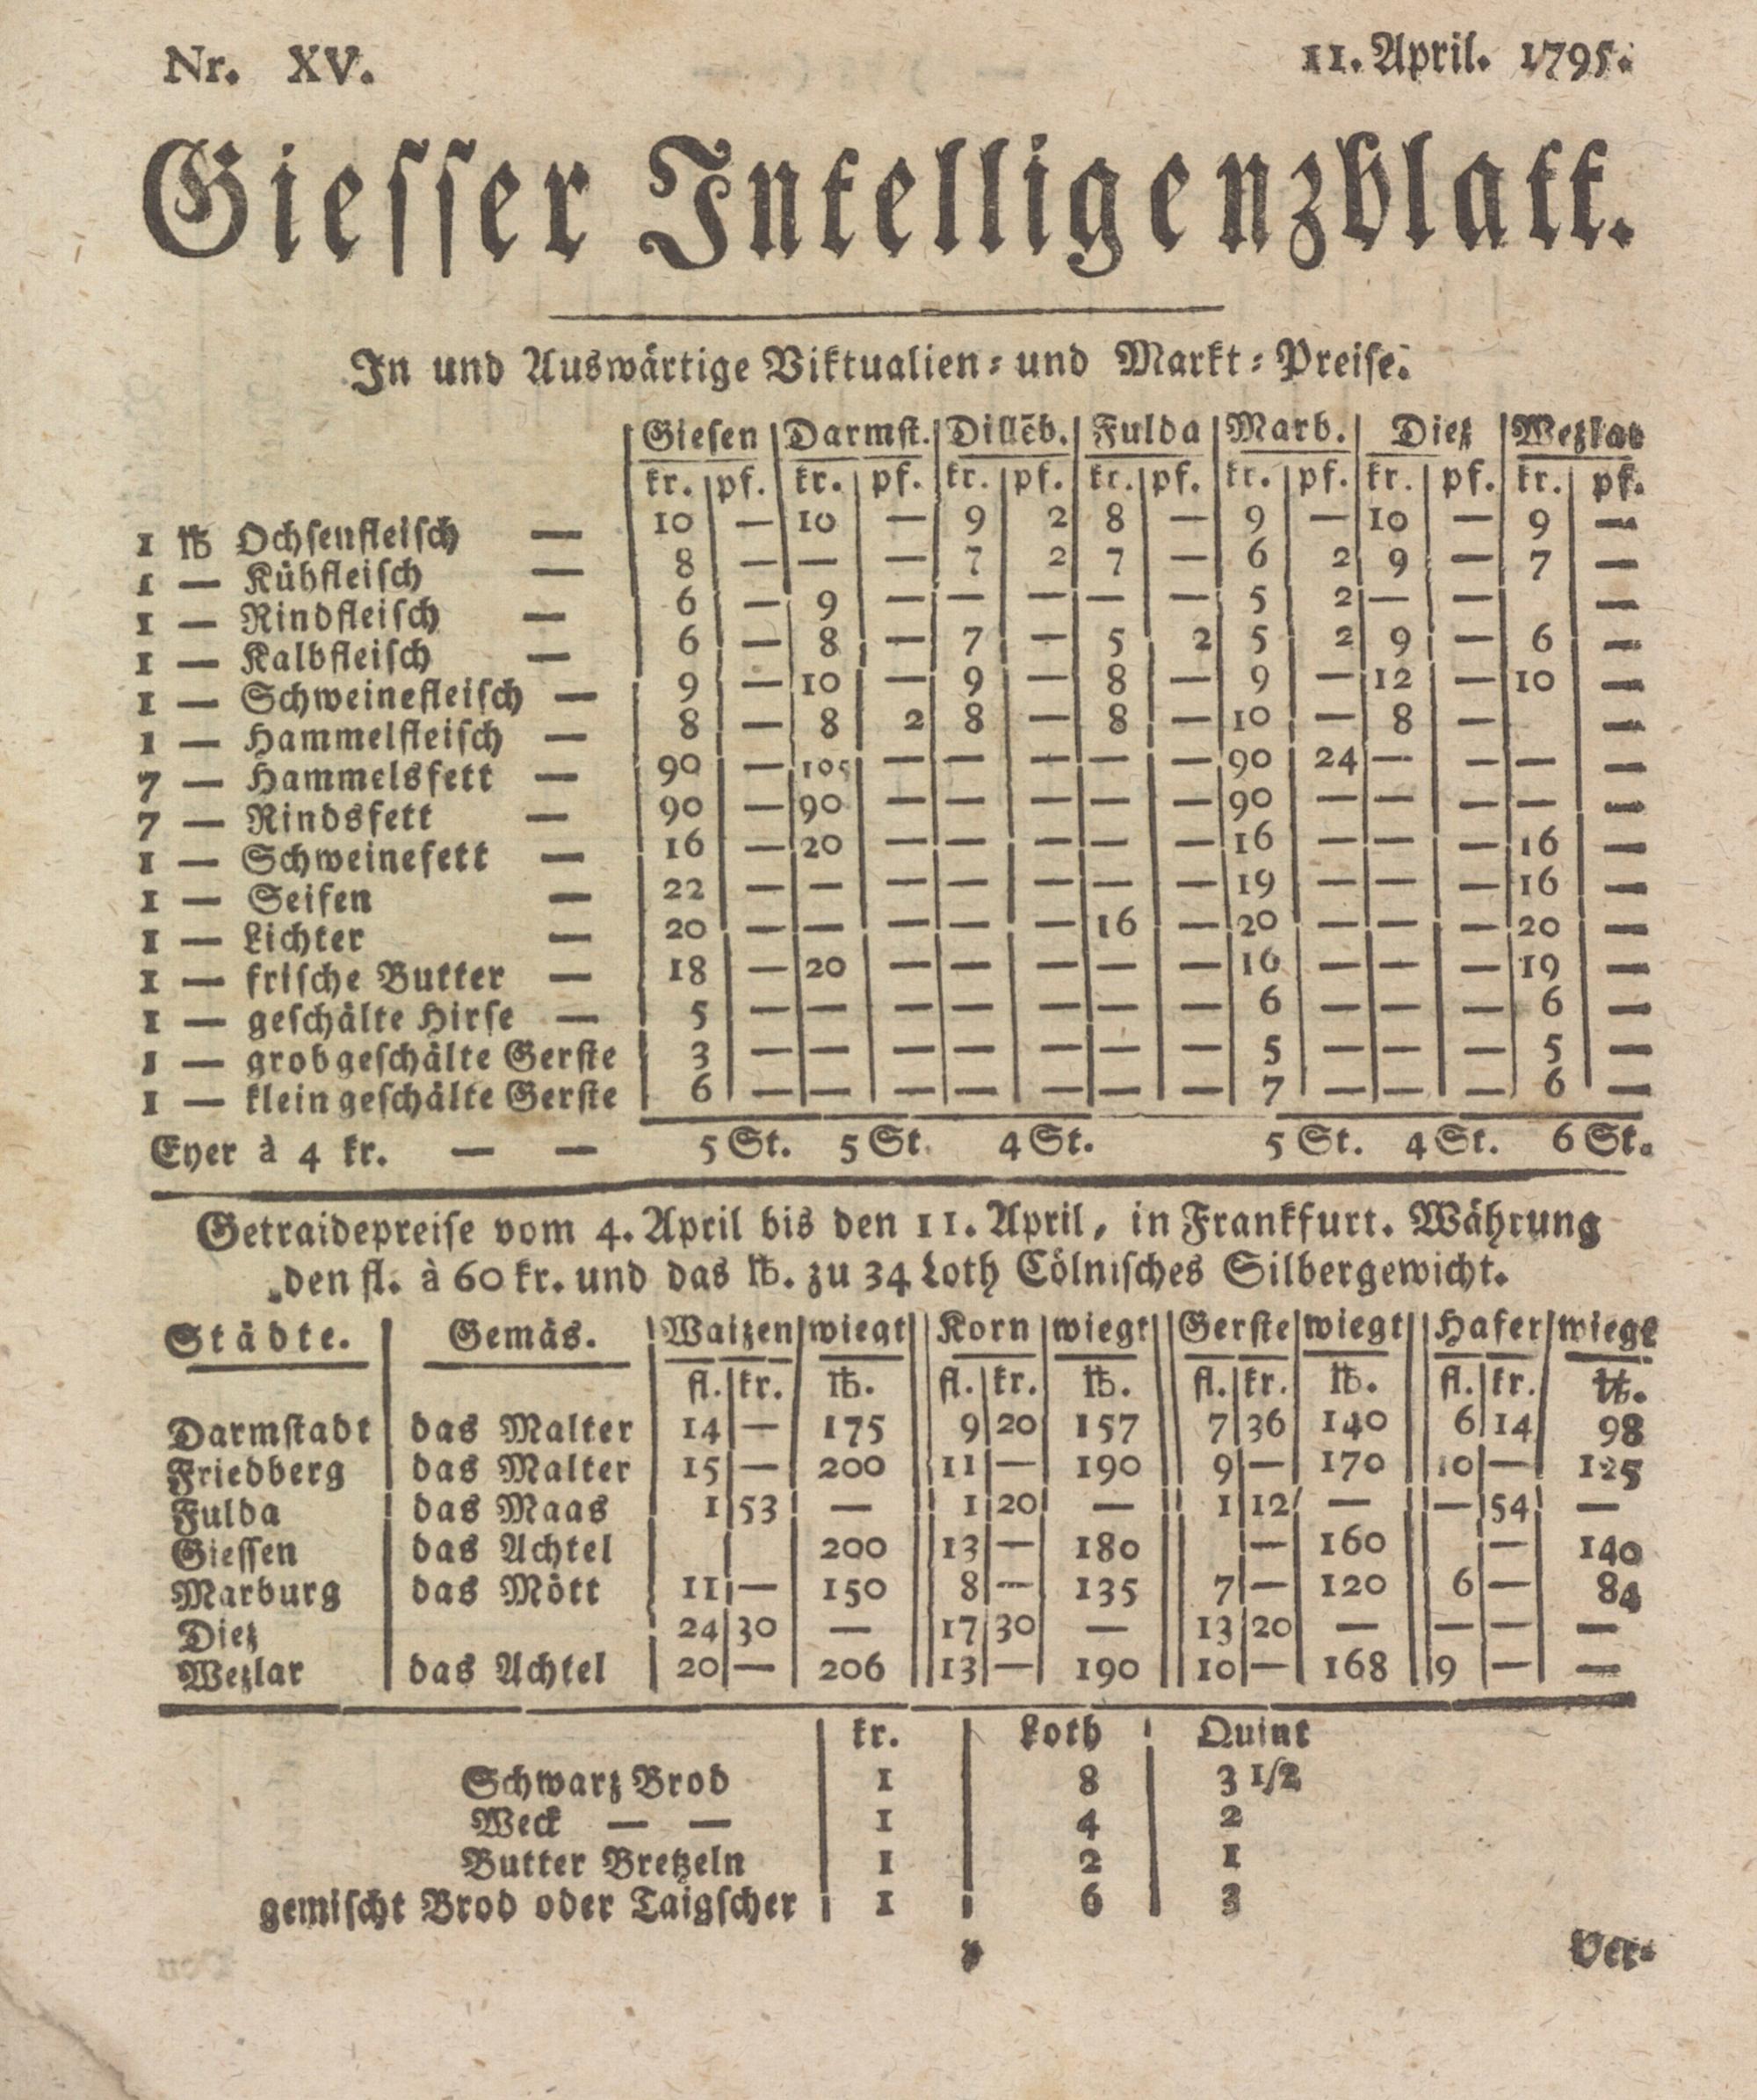 Nr. XV. 11. April. 1795.
Giesser Intelligenzblatt.
In und Auswärtige Viktualien- und Markt-Preise.
Giesen Darmst. Dillēb. Fulda Marb. Diez Wezlar
kr. pf. kr. pf. kr. pf. kr. pf. kr. pf. kr. pf. kr. pf.
1 ℔ Ochsenfleisch — 10 — 10 — 9 2 8 — 9 — 10 — 9 —
1 — Kühfleisch — 8 — — — 7 2 7 — 6 2 9 — 7 —
1 — Rindfleisch — 6 — 9 — — — — — 5 2 — — —
1 — Kalbfleisch — 6 — 8 — 7 — 5 2 5 2 9 — 6 —
1 — Schweinefleisch — 9 — 10 — 9 — 8 — 9 — 12 — 10 —
1 — Hammelfleisch — 8 — 8 2 8 — 8 — 10 — 8 — —
7 — Hammelsfett — 90 — 105 — — — — — 90 24 — — — —
7 — Rindsfett — 90 — 90 — — — — — 90 — — — — —
1 — Schweinefett — 16 — 20 — — — — — 16 — — — 16 —
1 — Seifen — 22 — — — — — — — 19 — — — 16 —
1 — Lichter — 20 — — — — — 16 — 20 — — — 20 —
1 — frische Butter — 18 — 20 — — — — — 16 — — — 19 —
1 — geschälte Hirse — 5 — — — — — — — 6 — — — 6 —
1 — grobgeschälte Gerste 3 — — — — — — — 5 — — — 5 —
1 — kleingeschälte Gerste 6 — — — — — — — 7 — — — 6 —
Eyer à 4 kr. — — 5 St. 5 St. 4 St. 5 St. 4 St. 6 St.
Getraidepreise vom 4. April bis den 11. April, in Frankfurt. Währung
den fl. à 60 kr. und das ℔. zu 34 Loth Cölnisches Silbergewicht.
Städte. Gemäs. Waizen wiegt Korn wiegt Gerste wiegt Hafer wiegt
fl. kr. ℔. fl. kr. ℔. fl. kr. ℔. fl. kr. ℔.
Darmstadt das Malter 14 — 175 9 20 157 7 36 140 6 14 98
Friedberg das Malter 15 — 200 11 — 190 9 — 170 10 — 125
Fulda das Maas 1 53 — 1 20 — 1 12 — — 54 —
Giessen das Achtel 200 13 — 180 — 160 — 140
Marburg das Mött 11 — 150 8 — 135 7 — 120 6 — 84
Diez 24 30 — 17 30 — 13 20 — — — —
Wezlar das Achtel 20 — 206 13 — 190 10 — 168 9 — —
kr. Loth Quint
Schwarz Brod 1 8 3 1/2
Weck — — 1 4 2
Butter Bretzeln 1 2 1
gemischt Brod oder Taigscher 1 6 3
Ver-